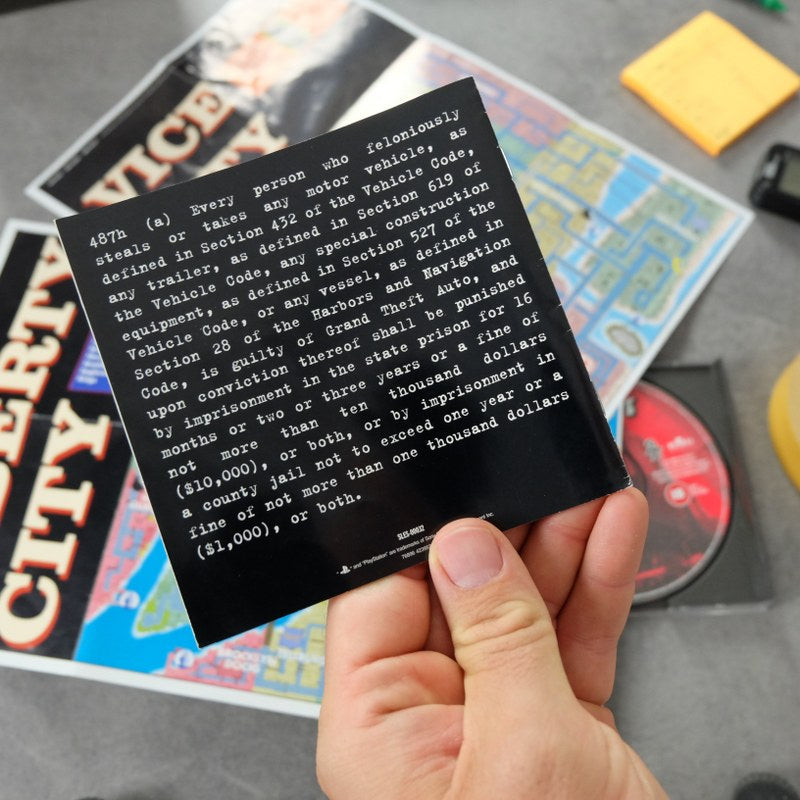 VICE
CITY
487h (a) Every person who feloniously
steals or takes any motor vehicle, as
defined in Section 432 of the Vehicle Code,
any trailer, as defined in Section 619 of
the Vehicle Code, any special construction
equipment, as defined in Section 527 of the
Vehicle Code, or any vessel, as defined in
Section 28 of the Harbors and Navigation
Code, is guilty of Grand Theft Auto, and
upon conviction thereof shall be punished
by imprisonment in the state prison for 16
months or two or three years or a fine of
not more than ten thousand dollars
($10,000), or both, or by imprisonment in
a county jail not to exceed one year or a
fine of not more than one thousand dollars
($1,000), or both.
SLES-00032
and "PlayStation" are trademarks of Sony
Inc.
CITY